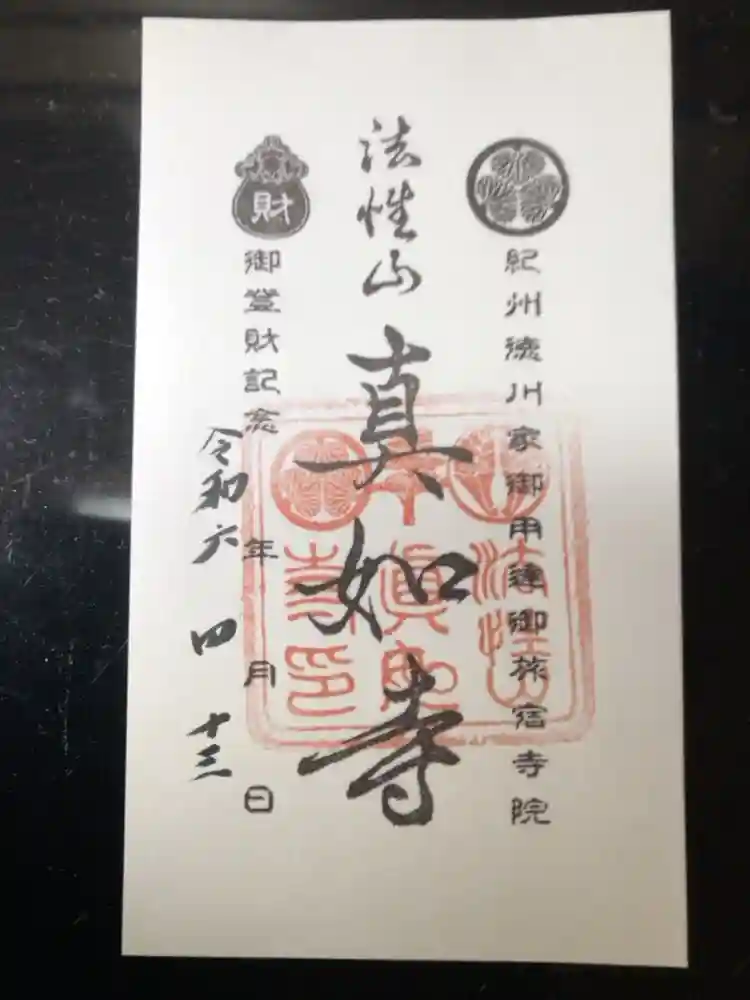 紀州徳川家御用達御旅宿寺院
法性山
真如寺
財
御登財記念
令和六年四月十三日
法性山
真如
寺印